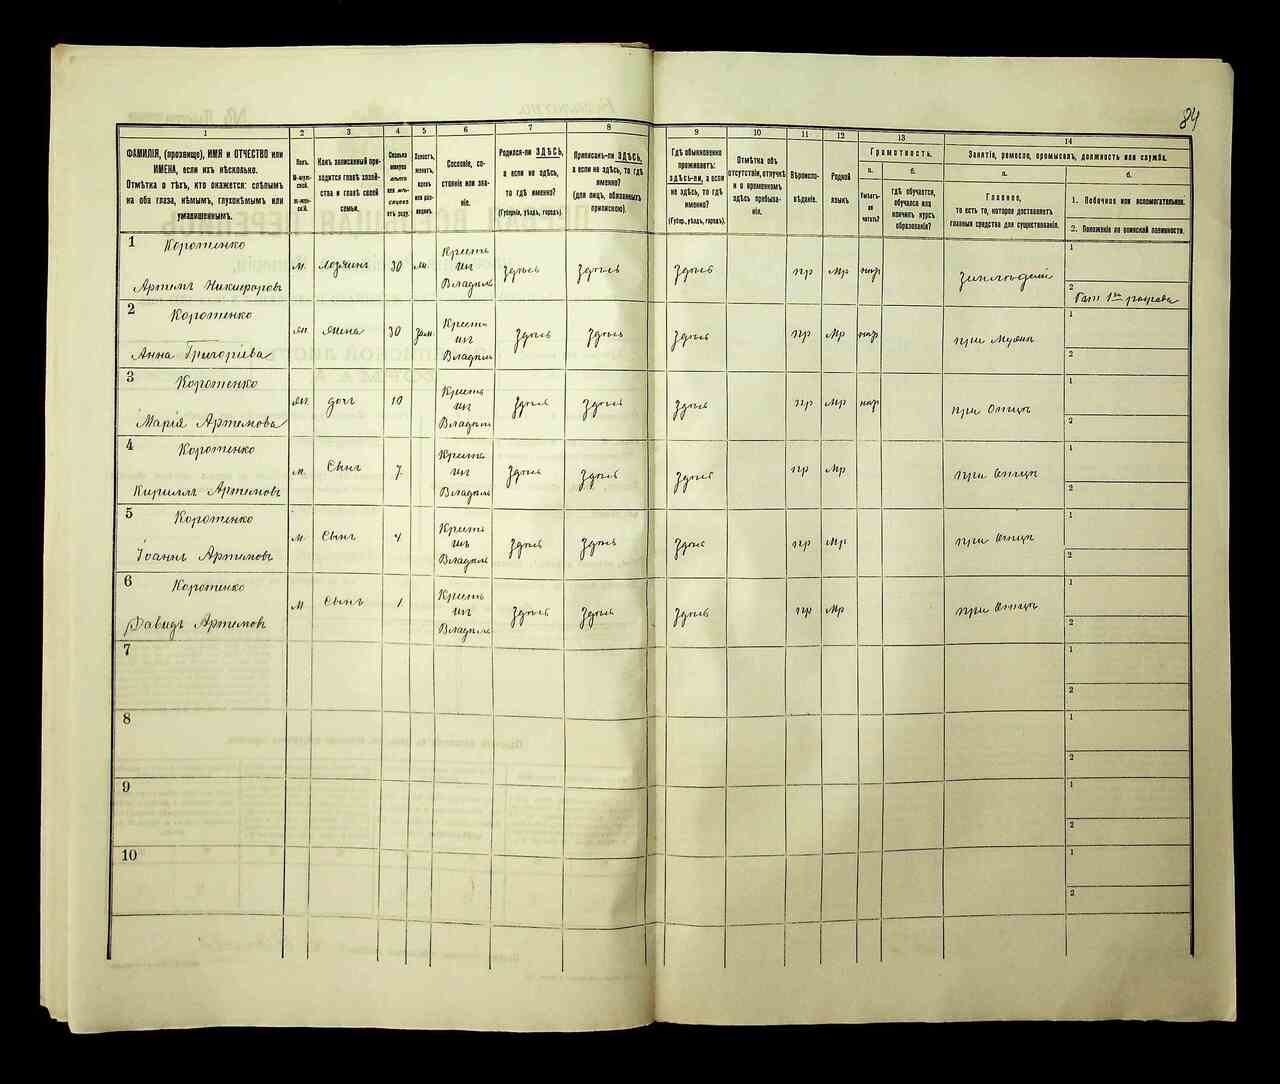 84
1 2 3 4 5 6 7 8 9 10 11 12 13 14
ФАМИЛІЯ, (прозвище), ИМЯ и ОТЧЕСТВО или
ИМЕНА, если ихъ нѣсколько.
Отмѣтка о тѣхъ, кто окажется: слѣпымъ
на оба глаза, нѣмымъ, глухонѣмымъ или
умалишеннымъ.
Полъ.
М-муж-
ской.
Ж-жен-
скій.
Какъ записанный при-
ходится главѣ хозяй-
ства и главѣ своей
семьи.
Сколько
минуло
лѣтъ
или мѣ-
сяцевъ
отъ роду.
Холостъ,
женатъ,
вдовъ
или раз-
веденъ.
Сословіе, со-
стояніе или зва-
ніе.
Родился-ли ЗДѢСЬ,
а если не здѣсь,
то гдѣ именно?
(Губернія, уѣздъ, городъ).
Приписанъ-ли ЗДѢСЬ,
а если не здѣсь, то гдѣ
именно?
(для лицъ, обязанныхъ
припискою).
Гдѣ обыкновенно
проживаетъ:
здѣсь-ли, а если
не здѣсь, то гдѣ
именно?
(Губер., уѣздъ, городъ).
Отмѣтка объ
отсутствіи, отлучкѣ
и о временномъ
здѣсь пребыва-
ніи.
Вѣроиспо-
вѣданіе.
Родной
языкъ
Грамотность.
а. б.
Умѣетъ-
ли
читать?
гдѣ обучается,
обучался или
кончилъ курсъ
образованія?
Занятіе, ремесло, промыселъ, должность или служба.
а. б.
Главное,
то есть то, которое доставляетъ
главныя средства для существованія.
1. Побочное или вспомогательное.
2. Положеніе по воинской повинности.
1 Коротенко
Артемъ Никифоровъ
м. хозяинъ 30 Крестьянъ Владѣль здѣсь здѣсь здѣсь пр мр
1
2
2 Коротенко
Анна Григоріева
жена 30 зам. Крестьянъ Владѣль здѣсь здѣсь здѣсь пр мр при Мужѣ
1
2
3 Коротенко
Марія Артемова
дочь 10 Крестьянъ Владѣль здѣсь здѣсь здѣсь пр мр при Отцѣ
1
2
4 Коротенко
Кириллъ Артемовъ
м. Сынъ 7 Крестьянъ Владѣль здѣсь здѣсь здѣсь пр мр при Отцѣ
1
2
5 Коротенко
Іоаннъ Артемовъ
м. Сынъ 4 Крестьянъ Владѣль здѣсь здѣсь здѣсь пр мр при Отцѣ
1
2
6 Коротенко
Давидъ Артемовъ
м. Сынъ 1 Крестьянъ Владѣль здѣсь здѣсь здѣсь пр мр при Отцѣ
1
2
7
1
2
8
1
2
9
1
2
10
1
2